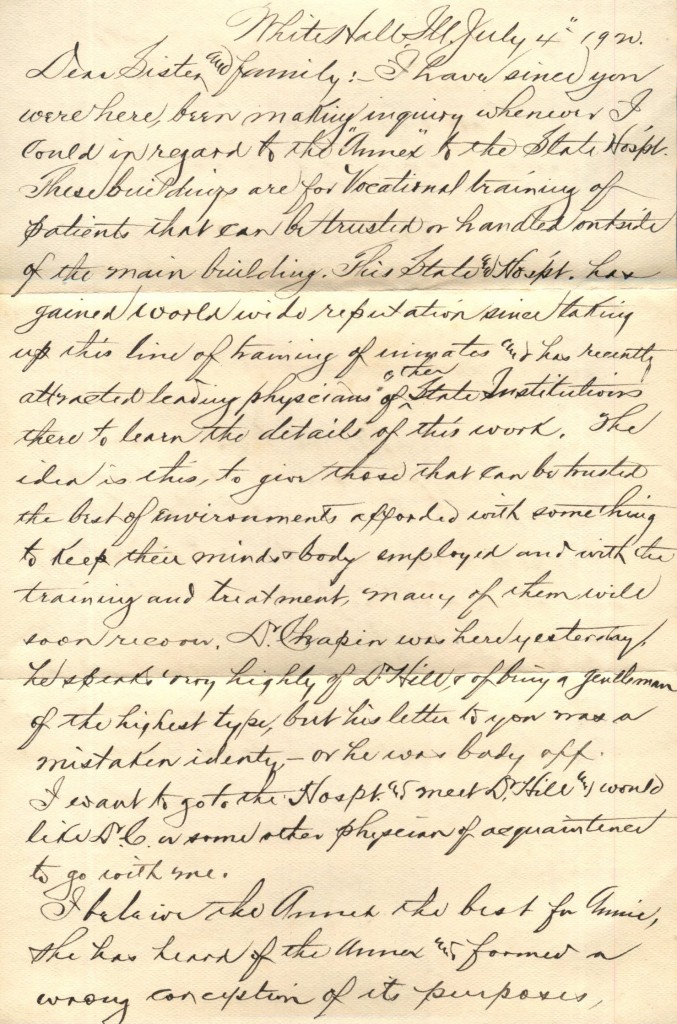 White Hall, Ill. July 4" 1920.
Dear Sister and family:- I have since you
were here, been making inquiry whenever I
could in regard to the "Annex" to the State Hospt.
These buildings are for Vocational training of
patients that can be trusted or handled outside
of the main building. This State and Hospt. has
gained world wide reputation since taking
up this line of training of inmates and has recently
attracted leading physicians of other State Institutions
there to learn the details of this work. The
idea is this, to give those that can be trusted
the best of environments afforded with something
to keep their minds & body employed and with the
training and treatment, many of them will
soon recover. Dr. Chapin was here yesterday,
he speaks very highly of Dr Hill, & of being a gentleman
of the highest type, but his letter to you was a
mistaken identy - or he was body off.
I want to go to the Hospt. and meet Dr Hill and would
like Dr. C. or some other physician of acquaintence
to go with me.
I beleive the Annex the best for Annie,
she has heard of the Annex and formed a
wrong conception of its purposes,